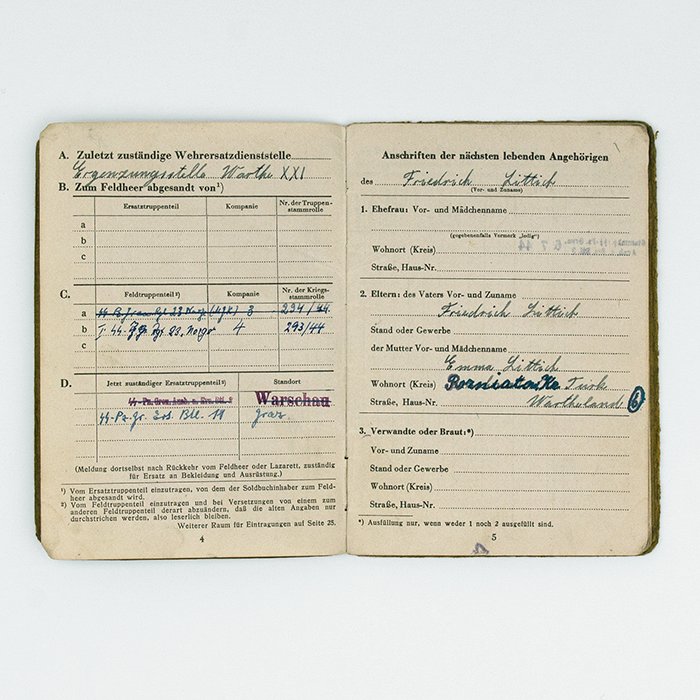 A. Zuletzt zuständige Wehrersatzdienststelle
Ergänzungsstelle Warthe XXI
B. Zum Feldheer abgesandt von¹)
Ersatztruppenteil Kompanie Nr. der Truppen-
stammrolle
a
b
c
C. Feldtruppenteil²) Kompanie Nr. der Kriegs-
stammrolle
a 23 Norge 3 294/44.
b 23. Norge 4 293/44
c
D. Jetzt zuständiger Ersatztruppenteil²) Standort
Warschau
Ers. Btl. 11 Graz
(Meldung dortselbst nach Rückkehr vom Feldheer oder Lazarett, zuständig
für Ersatz an Bekleidung und Ausrüstung.)
¹) Vom Ersatztruppenteil einzutragen, von dem der Soldbuchinhaber zum Feld-
heer abgesandt wird.
²) Vom Feldtruppenteil einzutragen und bei Versetzungen von einem zum
anderen Feldtruppenteil derart abzuändern, daß die alten Angaben nur
durchstrichen werden, also leserlich bleiben.
Weiterer Raum für Eintragungen auf Seite 25.
4
Anschriften der nächsten lebenden Angehörigen
des Friedrich Littich
(Vor- und Zuname)
1. Ehefrau: Vor- und Mädchenname
(gegebenenfalls Vermerk „ledig")
Wohnort (Kreis)
Straße, Haus-Nr.
2. Eltern: des Vaters Vor- und Zuname
Friedrich Littich
Stand oder Gewerbe
der Mutter Vor- und Mädchenname
Emma Littich
Wohnort (Kreis) Turk
Straße, Haus-Nr. Wartheland 6
3. Verwandte oder Braut:*)
Vor- und Zuname
Stand oder Gewerbe
Wohnort (Kreis)
Straße, Haus-Nr.
*) Ausfüllung nur, wenn weder 1 noch 2 ausgefüllt sind.
5